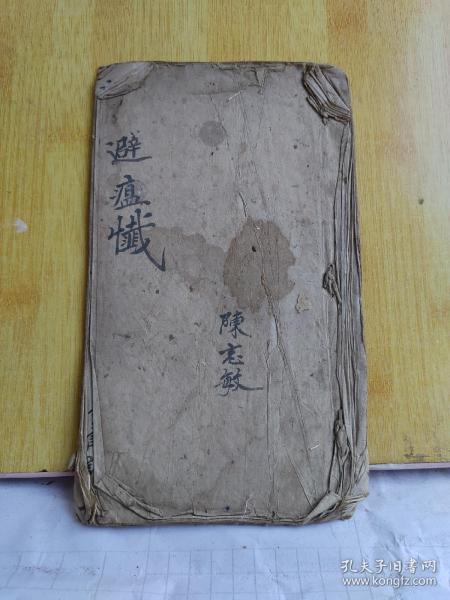 避瘟懺
陳志敏
孔夫子旧书网
www.kongfz.com